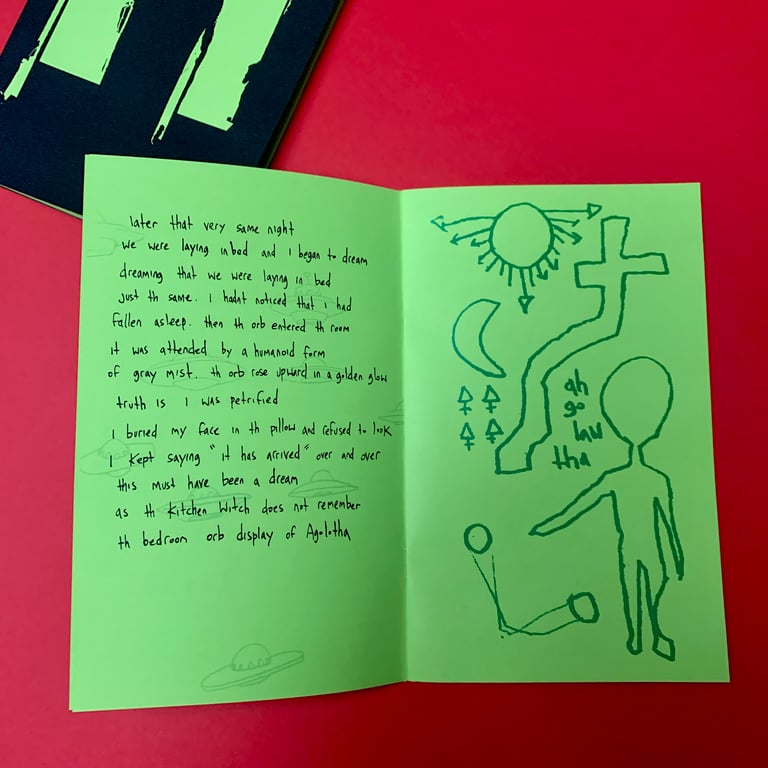 later that very same night
we were laying in bed and I began to dream
dreaming that we were laying in bed
just th same. I hadnt noticed that i had
fallen asleep. then th orb entered th room
it was attended by a humanoid form
of gray mist. th orb rose upward in a golden glow
truth is I was petrified
I buried my face in th pillow and refused to look
I kept saying "it has arrived" over and over
this must have been a dream
as th Kitchen Witch does not remember
th bedroom orb display of Agolotha
ah
go
law
tha